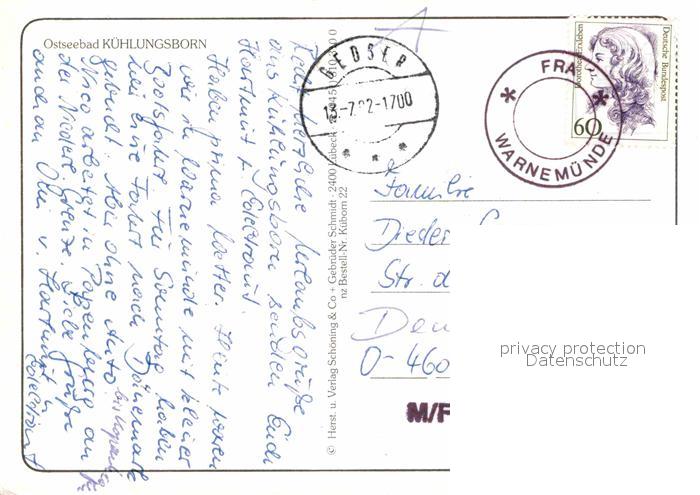 Ostseebad KÜHLUNGSBORN
Recht herzliche Urlaubsgrüße
aus Kühlungsborn senden Euch
Hartmut + Edeltraut.
Haben prima Wetter. Heute waren
wir in Warnemünde mit kleiner
Bootsfahrt. Für Sonntag haben
wir eine Fahrt nach Dänemark
gebucht. Aber ohne Auto.
Nico arbeitet in Papenburg an
der Niederl. Grenze. Liebe Grüße
auch an Omi v. Hartmut +
Edeltraut
© Herst. u. Verlag Schöning & Co + Gebrüder Schmidt · 2400 Lübeck
nz Bestell-Nr. Küborn 22
GEDSER
13-7.92-1700
FRA
WARNEMÜNDE
Deutsche Bundespost
60
Familie
Dieder
Str. d
O-460
M/F
privacy protection
Datenschutz